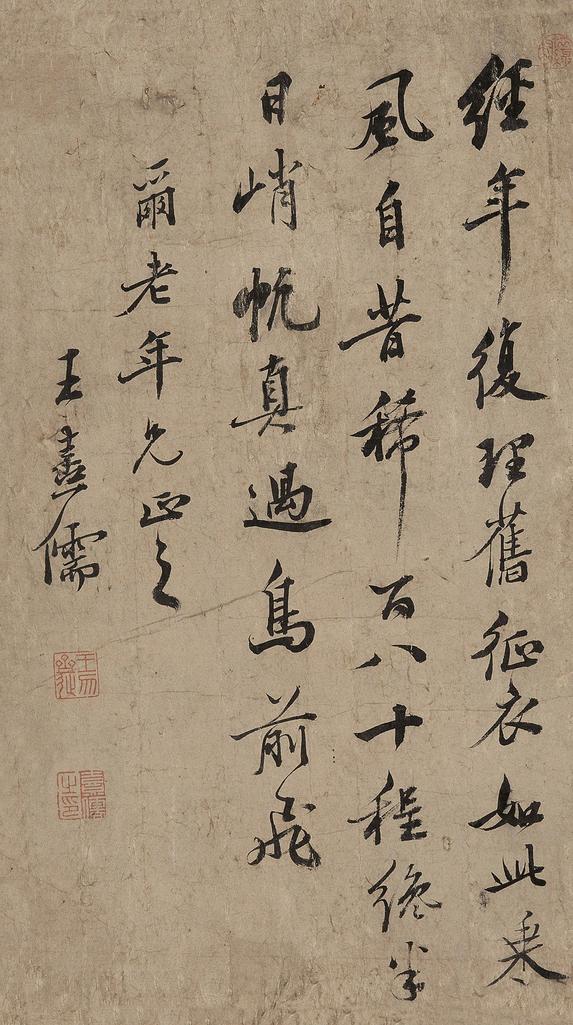 經年復理舊征衣如此乘
風自昔稀百八十程纔半
日峭帆真過鳥前飛
爾老年兄正之
王熹儒